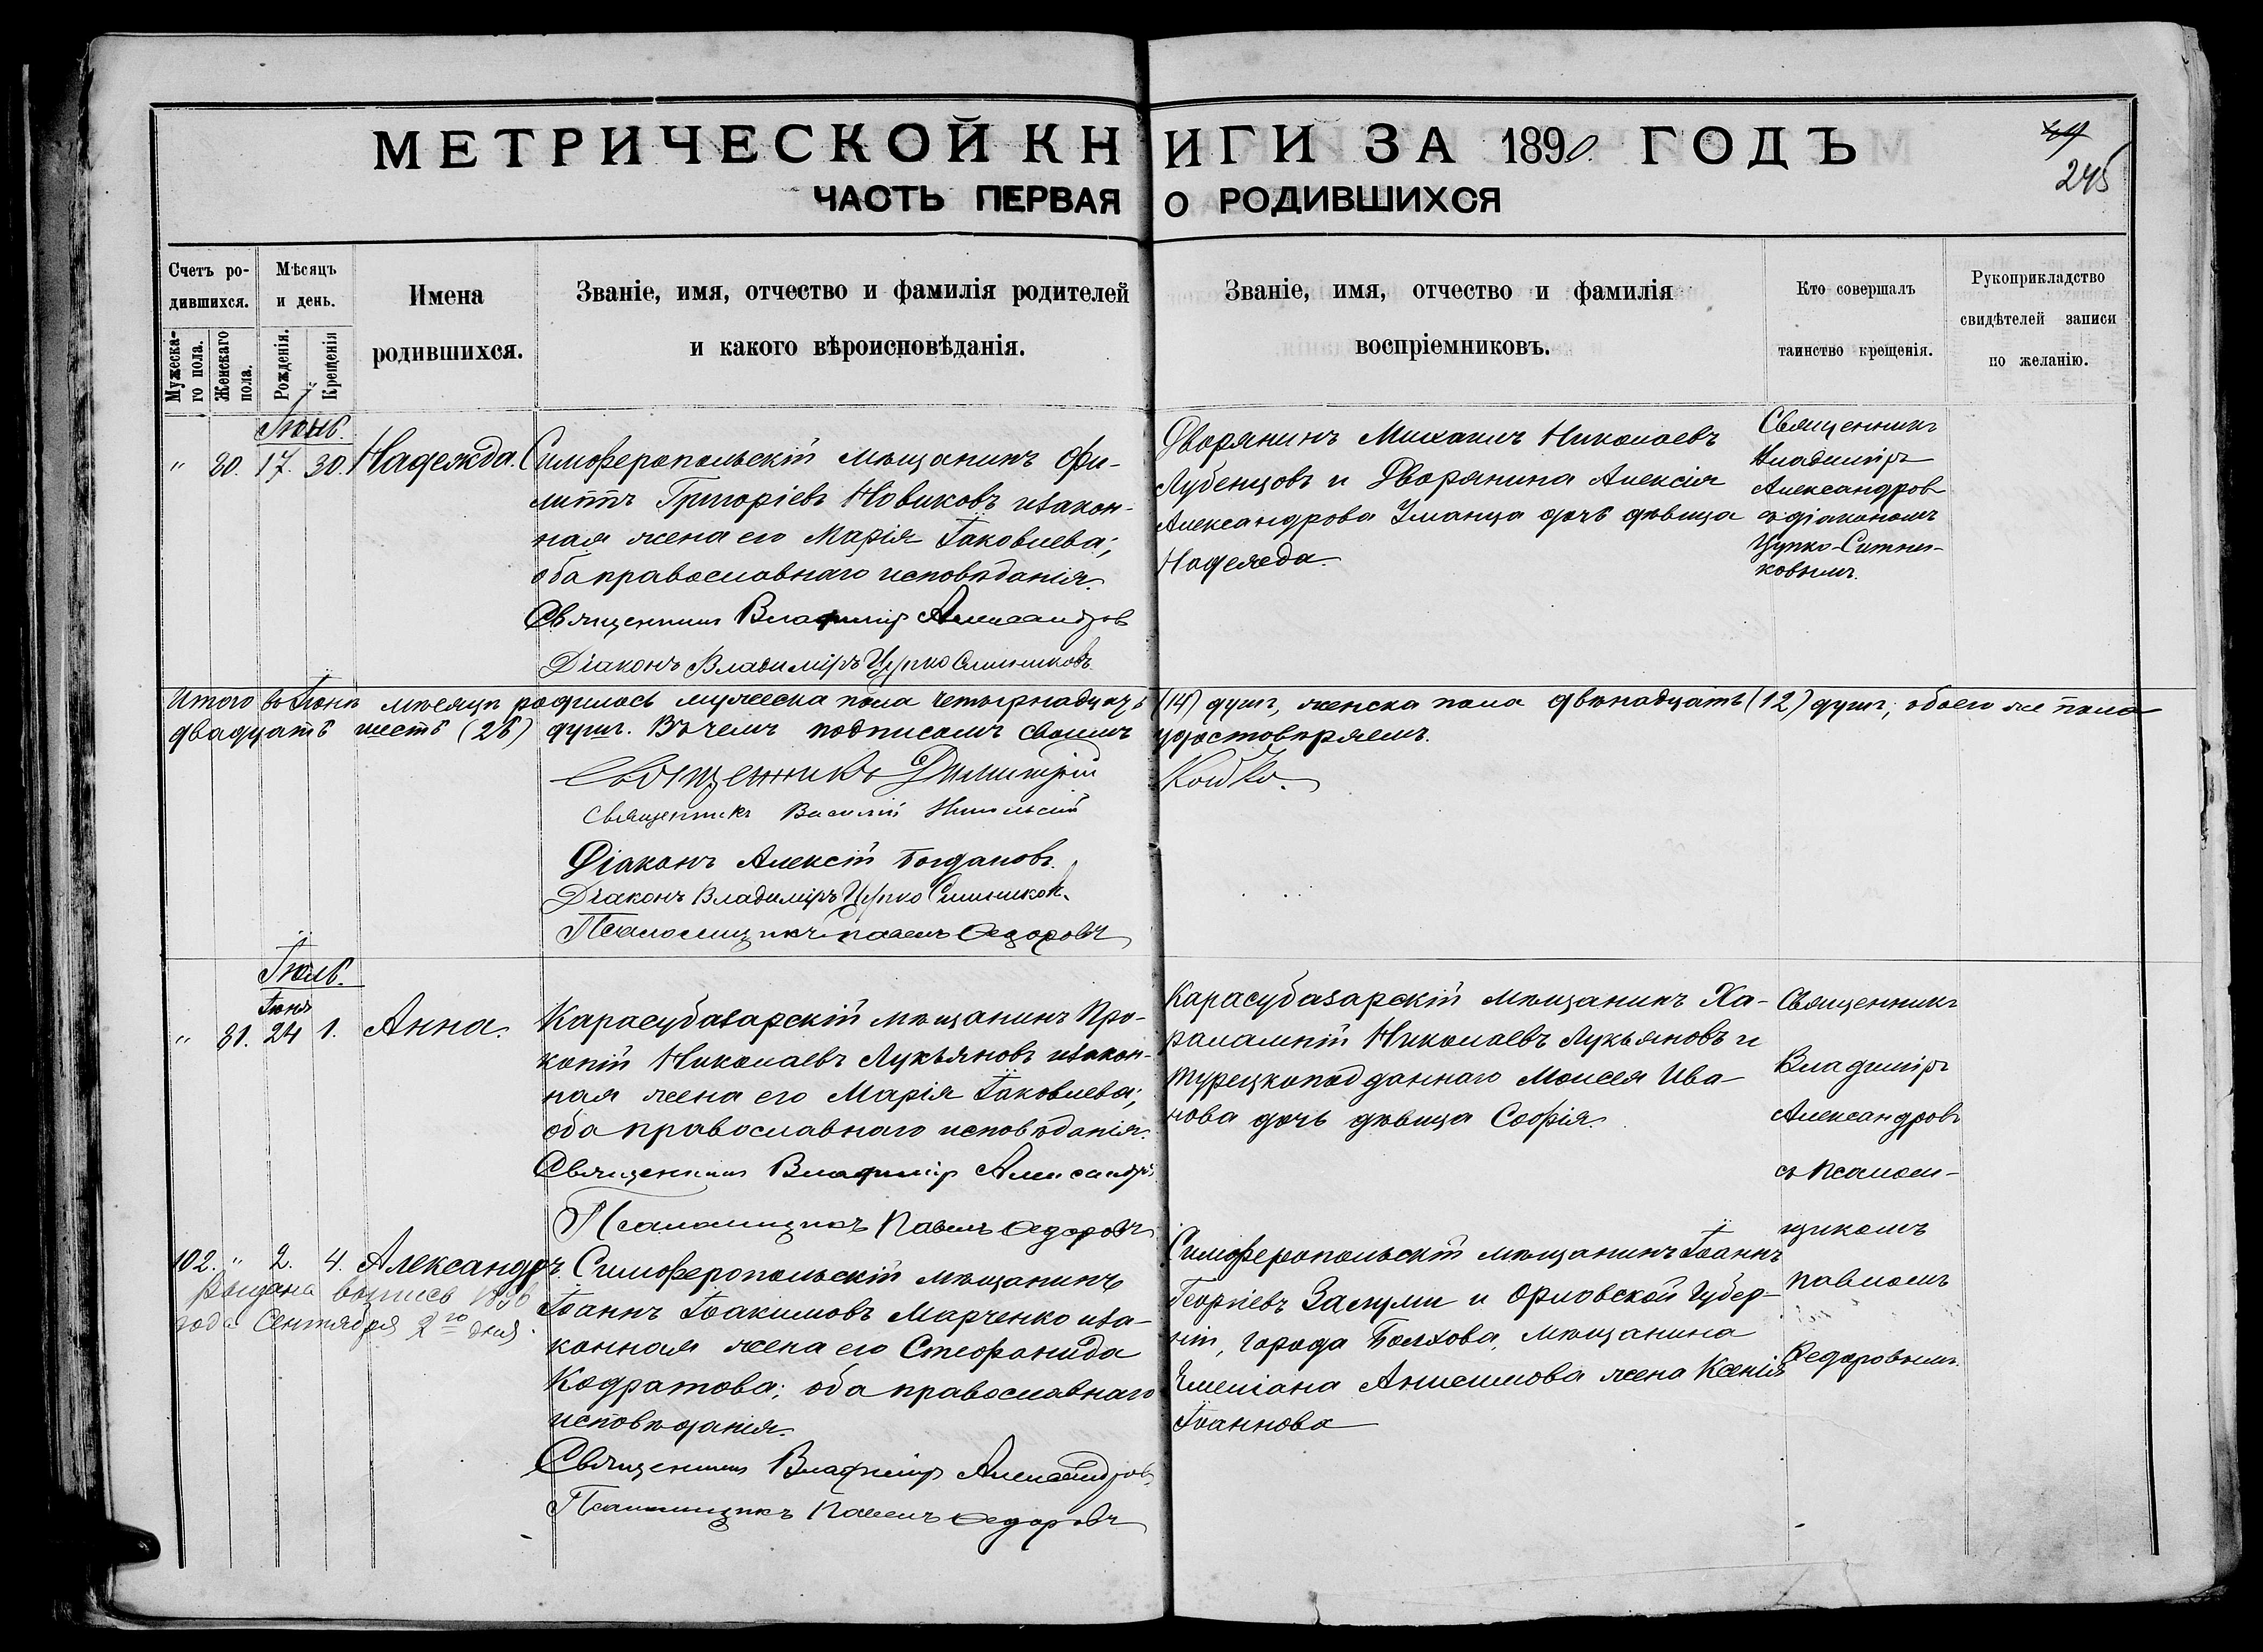 МЕТРИЧЕСКОЙ КНИГИ ЗА 1890. ГОДЪ
245
ЧАСТЬ ПЕРВАЯ О РОДИВШИХСЯ
Счетъ ро-
дившихся.
Мужеска-
го пола.
Женскаго
пола.
Мѣсяцъ
и день.
Рожденія.
Крещенія
Имена
родившихся.
Званіе, имя, отчество и фамилія родителей
и какого вѣроисповѣданія.
Званіе, имя, отчество и фамилія
воспріемниковъ.
Кто совершалъ
таинство крещенія.
Рукоприкладство
свидѣтелей записи
по желанію.
Іюнь.
" 80. 17. 30. Надежда.
Симферопольскій мѣщанинъ Фи-
липпъ Григоріевъ Новиковъ и закон-
ная жена его Марія Іаковлева;
оба православнаго исповѣданія.
Священникъ Владиміръ Александров
Діаконъ Владиміръ Цупко Ситников
Дворянинъ Михаилъ Николаевъ
Лубенцовъ и Дворянина Алексія
Александрова Уманца дочь дѣвица
Надежда.
Священникъ
Владиміръ
Александров
съ діакономъ
Цупко-Ситни-
ковымъ.
Итого въ Іюнѣ мѣсяцѣ родилось мужеска пола четырнадцать (14) душъ, женска пола двѣнадцать (12) душъ, обоего же пола
двадцать шесть (26) душъ. Въ чемъ подписомъ своимъ удостовѣряемъ.
Священникъ Димитрій Койко.
Священникъ Василій Никольскій
Діаконъ Алексій Богдановъ.
Діаконъ Владиміръ Цупко Ситников.
Псаломщикъ Павелъ Федоровъ
Іюль.
Іюня
" 81. 24 1. Анна.
Карасубазарскій мѣщанинъ Про-
копій Николаевъ Лукьяновъ и закон-
ная жена его Марія Іаковлева;
оба православнаго исповѣданія.
Священникъ Владиміръ Александръ
Псаломщикъ Павелъ Федоровъ
Карасубазарскій мѣщанинъ Ха-
ралампій Николаевъ Лукьяновъ и
турецкоподданнаго Моисея Ива-
нова дочь дѣвица Софія.
Священникъ
Владиміръ
Александровъ
съ псалом-
щикомъ
Павломъ
Федоровымъ.
102. " 2. 4. Александръ.
Выдана выпись 1896
года Сентября 2го дня.
Симферопольскій мѣщанинъ
Іоаннъ Іоакимовъ Марченко и за-
конная жена его Стефанида
Кодратова; оба православнаго
исповѣданія.
Священникъ Владиміръ Александров
Псаломщикъ Павелъ Федоровъ
Симферопольскій мѣщанинъ Іоаннъ
Георгіевъ и Орловской Губер-
ніи, города Болхова, мѣщанина
Емеліана Анисимова жена Ксенія
Іоаннова